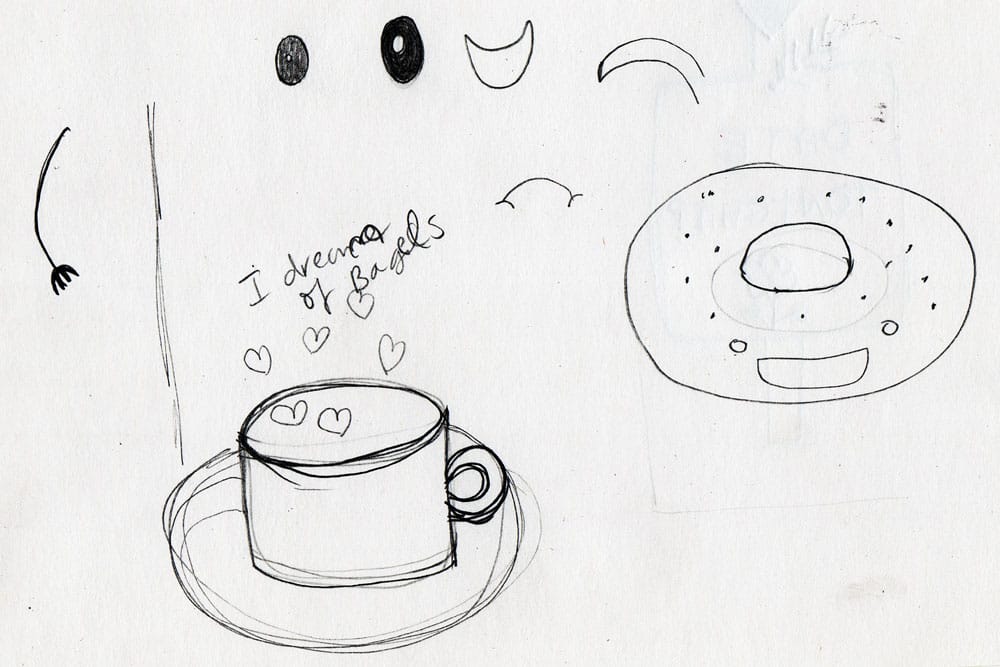 I dream
of Bagels